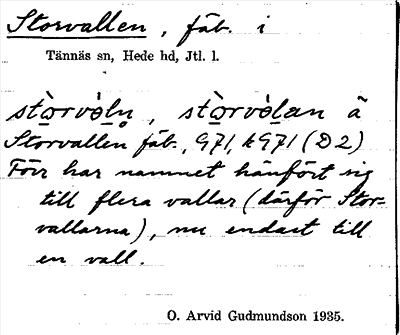 Storvallen, fäb. i
Tännäs sn, Hede hd, Jtl. l.
stòrvὰln, stòrvὰlan å
Storvallen fäb., G71, kG71 (D2)
Förr har namnet hänfört sig
till flera vallar (därför Stor-
vallarna), nu endast till
en vall.
O. Arvid Gudmundson 1935.